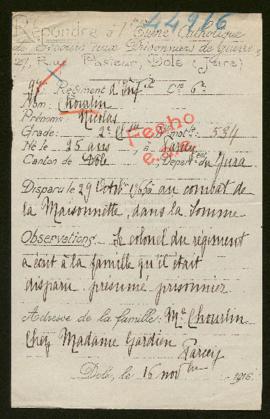 44966
Répondre à l'Œuvre Catholique
de Secours aux Prisonniers de Guerre
Rue Pasteur, Dole (Jura)
Régiment d'Inf. Cie 6e
Nom: Chourlin
Prénoms: Nicolas
Grade: 2e Cl.
Né le 25 ans, à Parcey
Canton de Dôle, Jura
Disparu le 29 Octob. au combat de
la Maisonnette, dans la Somme
Observations. Le colonel du régiment
a écrit à la famille qu'il était
disparu présumé prisonnier
Adresse de la famille: Me Chourlin
Chez Madame Gardien
Parcey
Dole, le 16 nov bre 1916